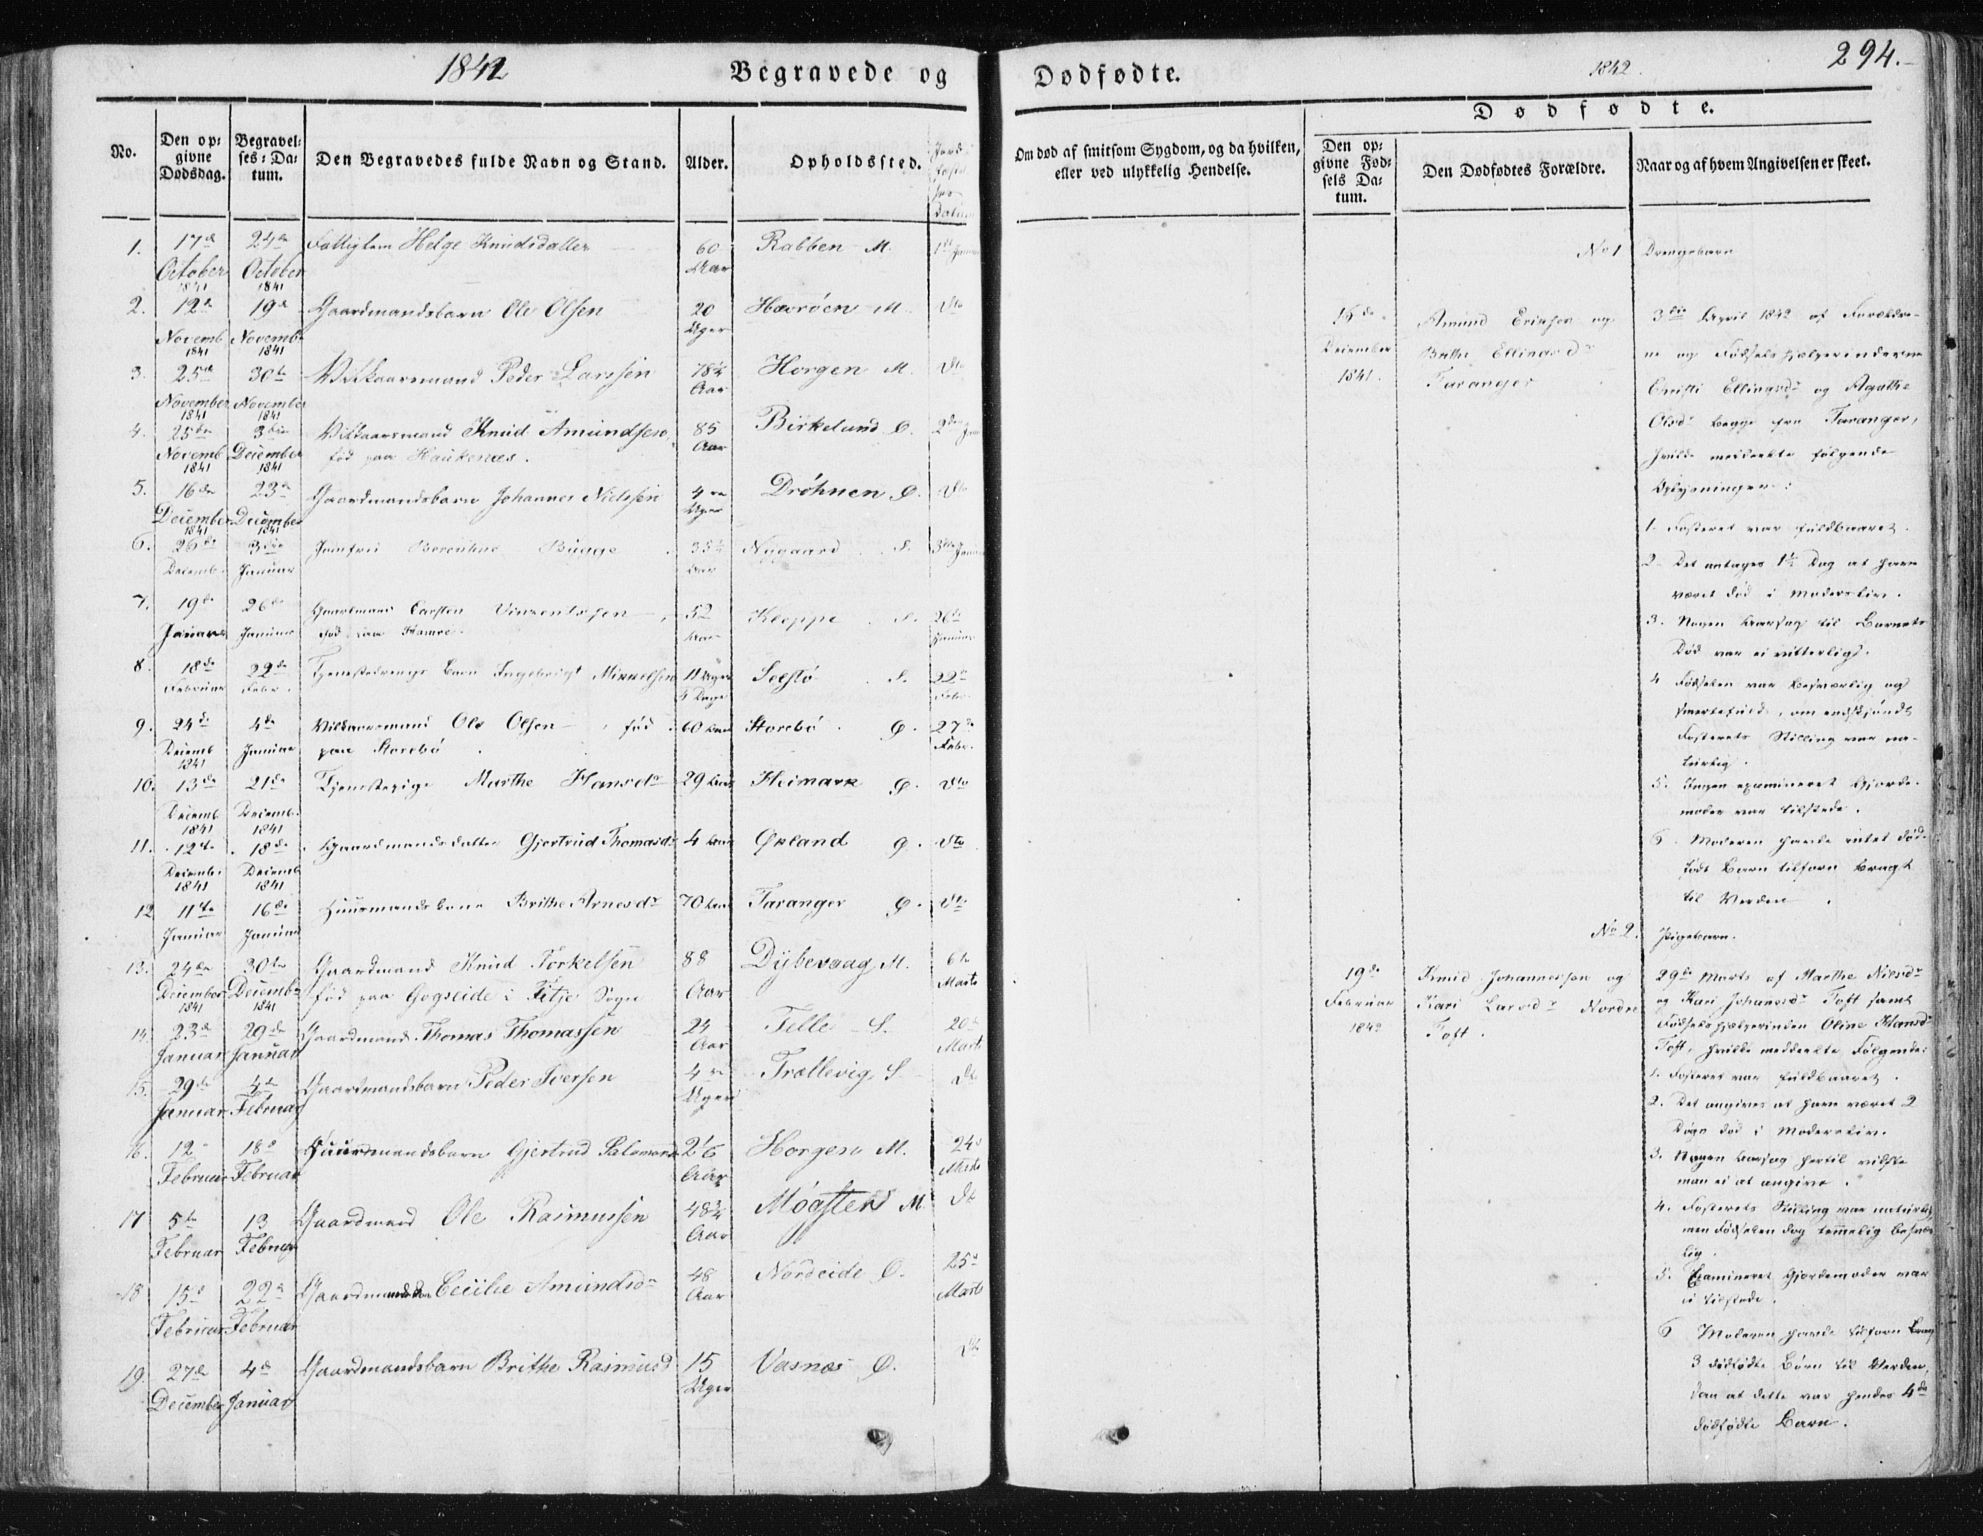 1842
Begravede og
No.
Den op-
givne
Dødsdag.
Begravel-
ses-Da-
tum.
Den Begravedes fulde Navn og Stand.
Alder.
Opholdssted.
Jord-
Datum
1. 17de October 1841 24de October 1841 Fattiglem Helge Knudsdatter 60 Aar Rabben M. 1ste Januar
2. 12te Novemb 1841 19de Novemb 1841 Gaardmandsbarn Ole Olsen 20 Uger Havrøen M. Dto
3. 25de November 1841 30te November 1841 Vilkaarsmand Peder Larssen 78½ Aar Horgen M. Dto
4. 25de Novemb 1841 3die December 1841 Vilkaarsmand Knud Amundsen 85 Aar Birkelund Ø. 2den Jan
fød paa Haukenæs.
5. 16de December 1841 23de December 1841 Gaardmandsbarn Johannes Nielssen 4 Uger Drøhnen Ø. Dto
6. 26de Decemb. 3die Januar Jomfru Bugge 35½ Aar Nygaard S. 3die Januar
7. 19de Januar 26de Januar Gaardmand Carsten Vincentssen 52 Aar Kleppe S. 26de Januar
fød paa
8. 18de Februar 22de Febr. Tjenestedrengs Barn Ingebrigt Mikkelsen 11 Uger 4 Dage Selstø S. 22de Febr.
9. 24de Decemb 1841 4de Januar Vilkaarsmand Ole Olsen fød 60 Aar Storebø Ø. 27de Febr.
paa Storebø
10. 13de Decemb 1841 21de Decemb. 1841 Tjenestepige Marthe Hansdr 29 Aar Heimark Ø. Dto
11. 12te Decemb. 1841 18de Decemb 1841 Gaardmandsdatter Gjertrud Thomasdr 4 Aar Økland Ø. Dto
12 11te Januar 16de Januar Huusmandskone Brithe Arnesdr 70 Aar Taranger Ø. Dto
13. 24de December 1841 30te December 1841 Gaardmand Knud Torkelsen 88 Aar Dybevaag M. 6te Marts
fød paa Gogseide i Fitje Sogn
14. 23de Januar 29de Januar Gaardmand Thomas Thomassen 24 Aar Telle S. 20de Marts
15. 29de Januar 4de Februar Gaardmandsbarn Peder Iversen 4 Uger Trællevig S Dto
16. 12 Februar 18de Februar Huusmandsbarn Gjertrud Salomonsd 2 1/6 Aar Horgen M. 24de Marts
17 5te Februar 13 Februar Gaardmand Ole Rasmussen 48¾ Aar Møgster M. Dto
18 15de Februar 22de Februar Gaardmandskone Cecilie Amundsdr 48 Aar Nordeide Ø. 25de Marts
19. 27de December 4de Januar Gaardmandsbarn Brithe Rasmusd 15 Uger Vasnæs Ø. Dto
Dødfødte.
1842.
294.
Om død af smitsom Sygdom, og da hvilken,
eller ved ulykkelig Hendelse.
Dødfødte.
Den op-
givne Fød-
sels Da-
tum.
Den Dødfødtes Forældre.
Naar og af hvem Angivelsen er skeet.
No 1 Drengebarn
15de December 1841.
Amund Eriksen og
Brithe Ellingsdr
Taranger
3die April 1842 af Forældre-
ne og Fødselshjælperinderne
Christi Ellingsdr og Agathe
Olsdr begge fra Taranger,
hvilke meddeelte følgende
Oplysninger:
1. Fosteret var fuldbaaret.
2. Det antages 1½ Dag at have
været død i Moderslivr.
3. Nogen Aarsag til Barnets
Død var ei vitterligt.
4 Fødselen var besværlig og
smertefuld, om endskjøndt
Fosterets Stilling var na-
turlig.
5. Ingen examineret Gjorde-
moder var tilstede.
6. Moderen havde intet død-
født Barn tilforn bragt
til Verden.
No 2. Pigebarn.
19de Februar 1842
Knud Johannessen og
Kari Larsdr Nordre
Toft.
29de Marts af Marthe Nilsdr
og Kari Johansdr Toft samt
Fødselshjælperinden Oline Hansdr
Toft, hvilke meddeelte Følgende:
1. Fosteret var fuldbaaret.
2. Det angives at have været 2
Døgn død i Moderslivr.
3. Nogen Aarsag hertil vidste
man ei at angive.
4. Fosterets Stilling var naturlig
men Fødselen dog temmelig besvær-
lig.
5. Examineret Gjordemoder var
ei tilstede.
6 Moderen havde tilforn bragt
3 dødfødte Børn til Verden,
saa at dette var hendes 4de
dødfødte Barn.